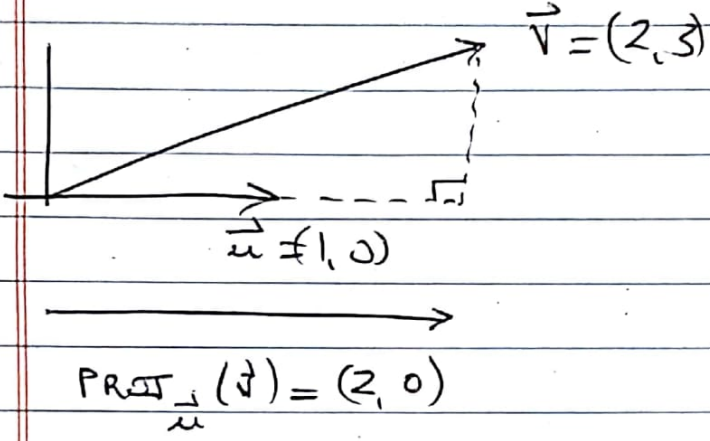 v⃗ = (2, 3)
u⃗ = (1, 0)
PROJ_u⃗ (v⃗) = (2, 0)